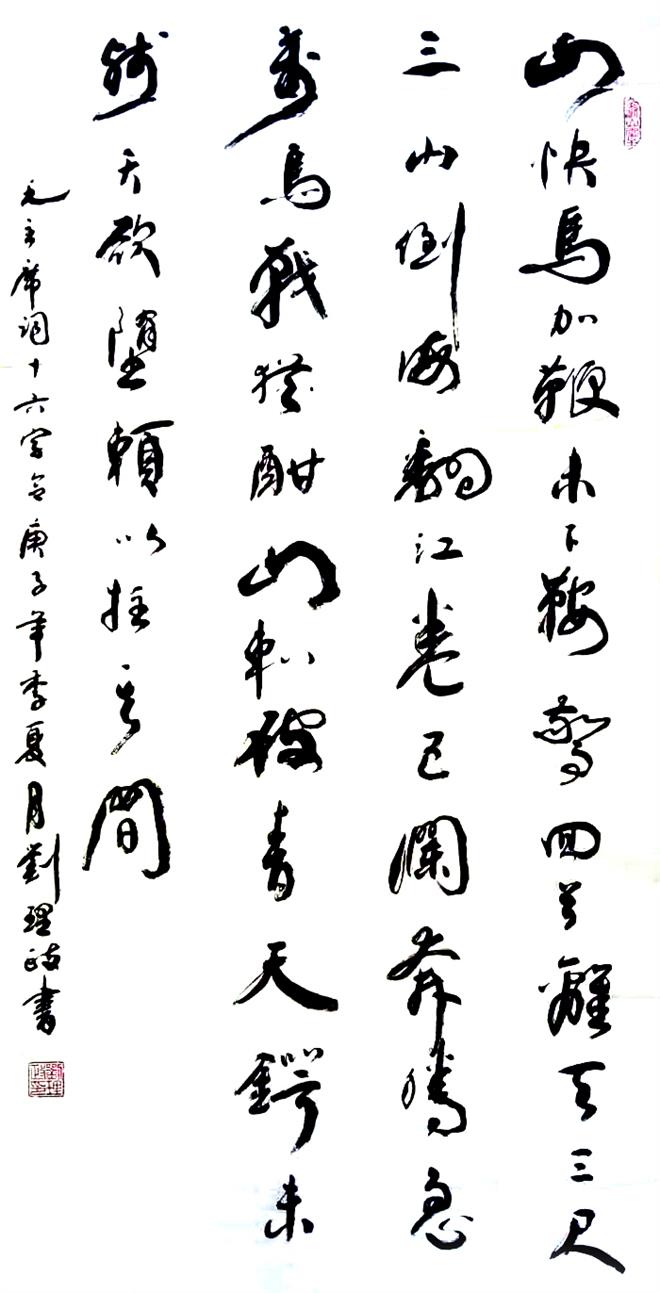 山快馬加鞭未下鞍驚回首離天三尺
三山倒海翻江卷巨瀾奔騰急
萬馬戰猶酣山刺破青天鍔未
殘天欲墮賴以拄其間
毛主席詞十六字令庚子年季夏月劉理政書
劉理政印